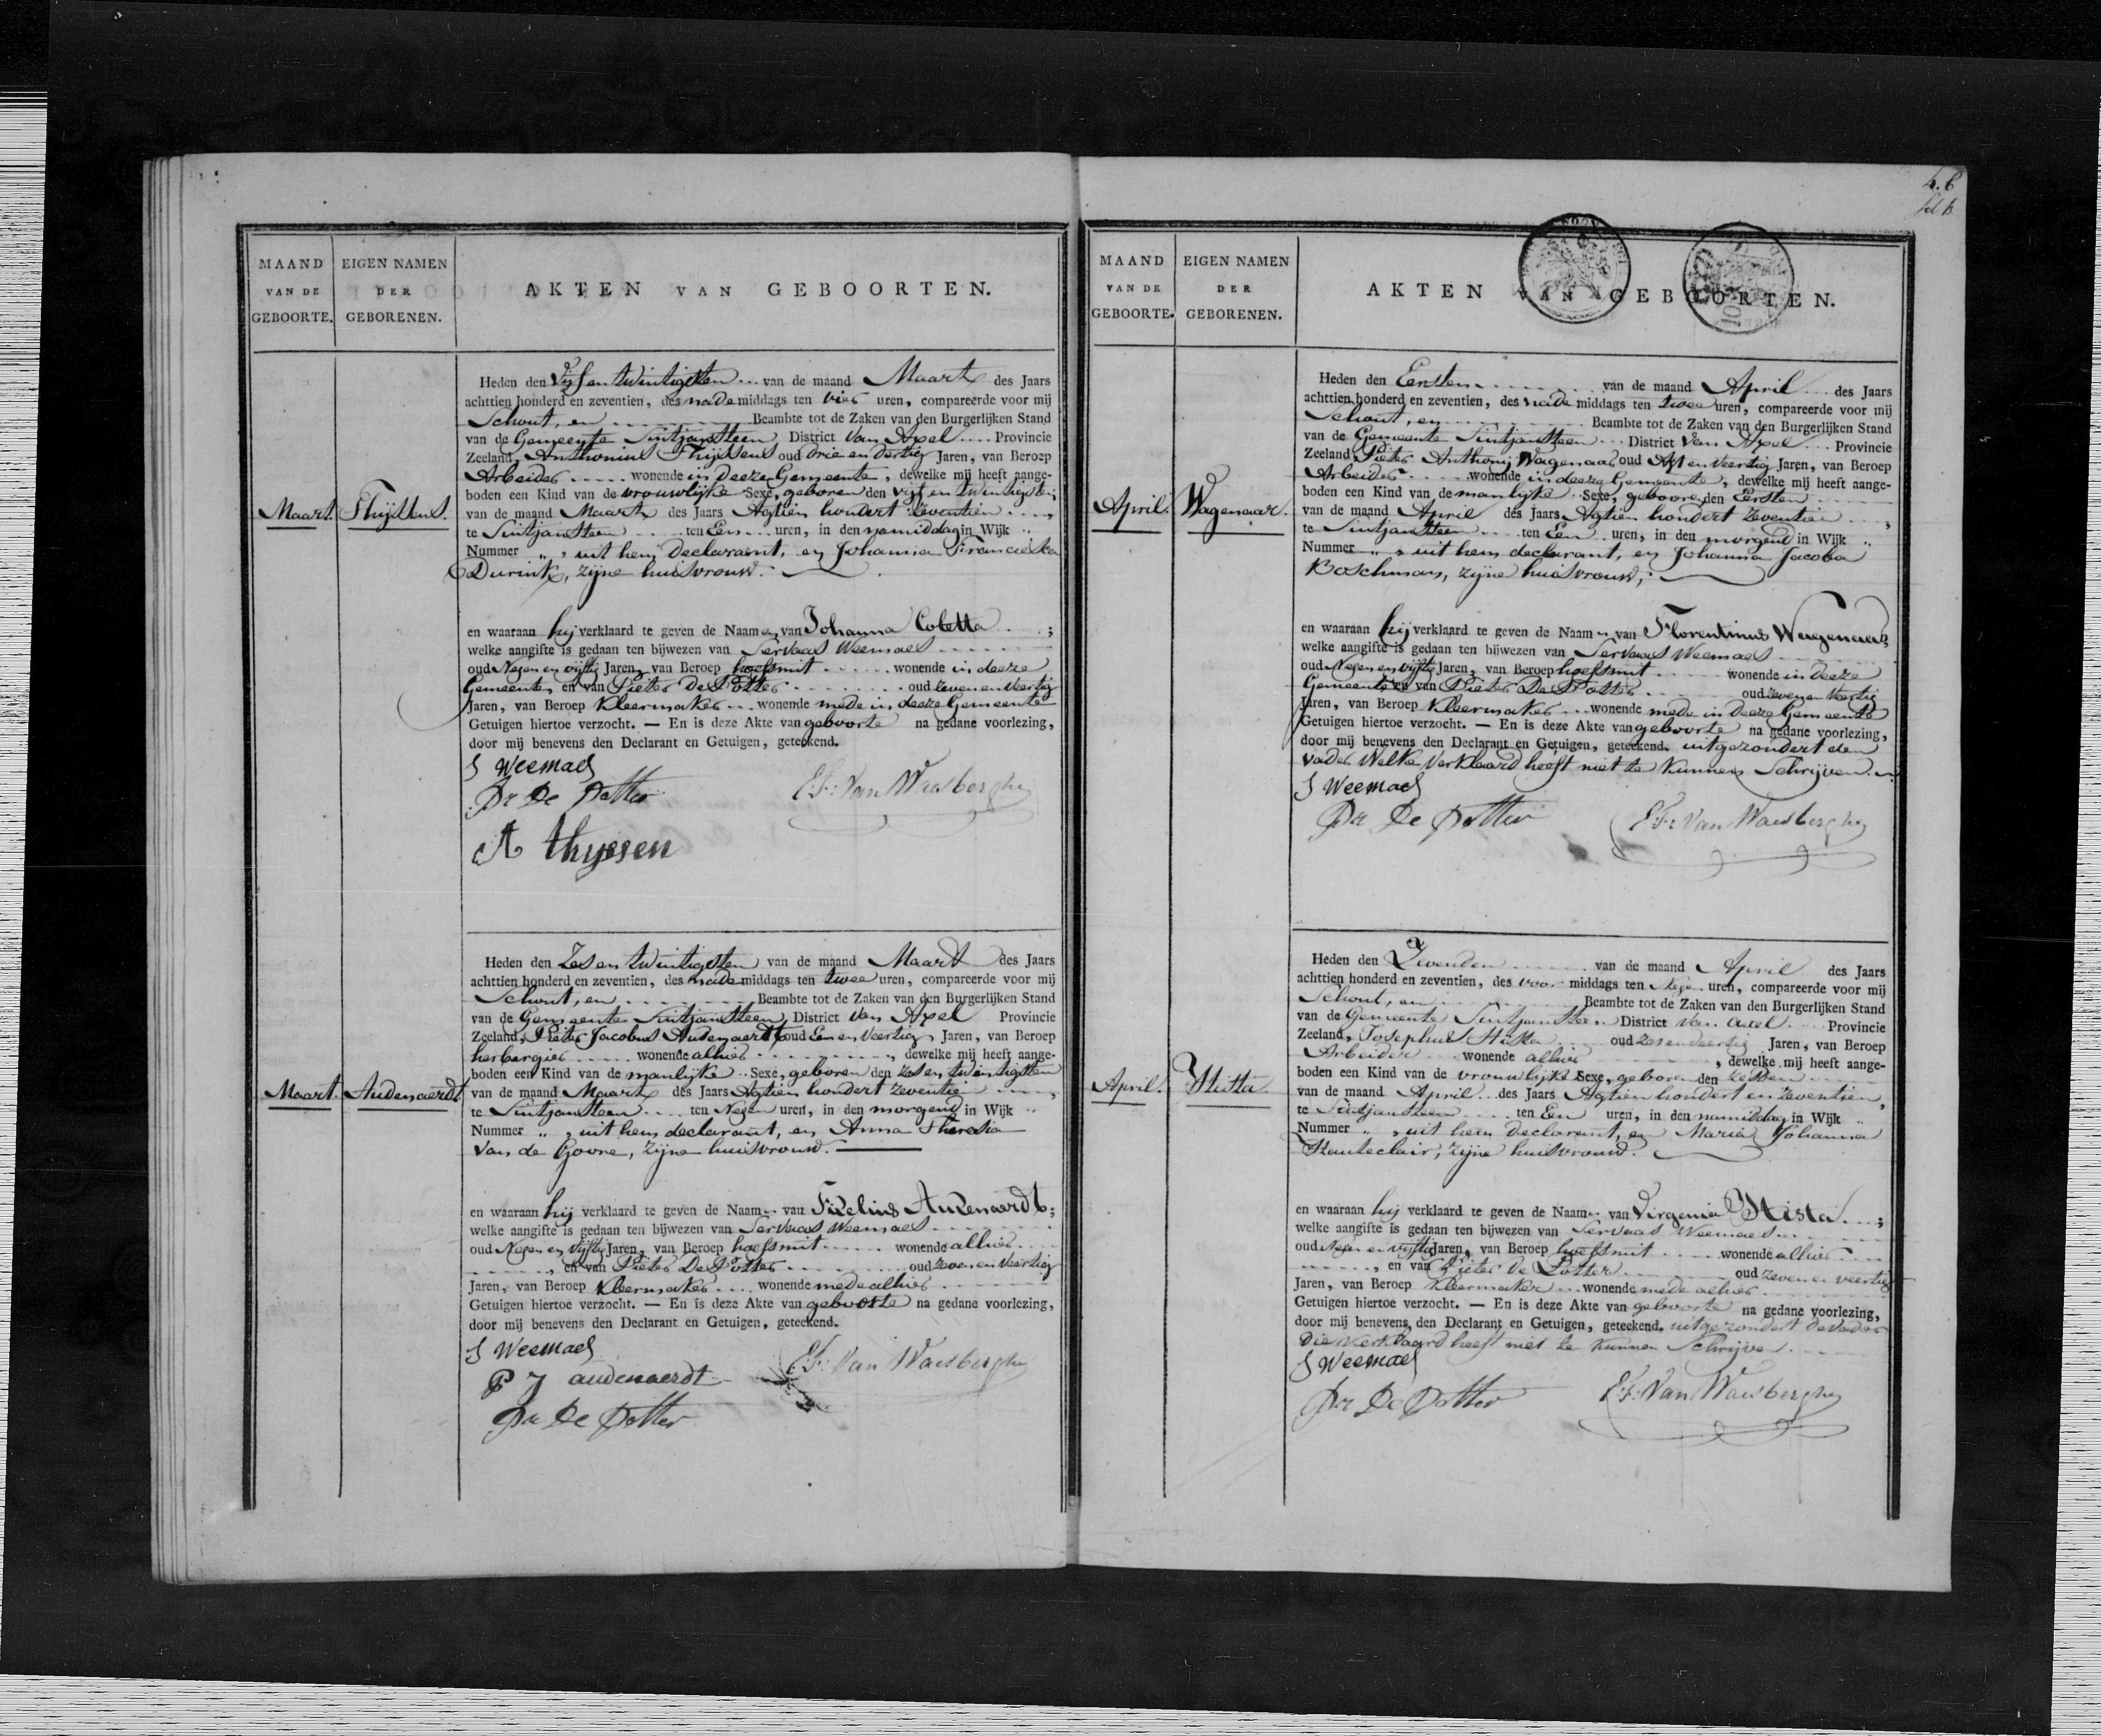 MAAND
VAN DE
GEBOORTE.
EIGEN NAMEN
DER
GEBORENEN.
AKTEN VAN GEBOORTEN.
Maart. Thijssens.
Heden den Vijf en twintigsten van de maand Maart des Jaars
achttien honderd en zeventien, des nade middags ten vier uren, compareerde voor mij
Schout, en Beambte tot de Zaken van den Burgerlijken Stand
van de Gemeente Sintjansteen District Van Axel Provincie
Zeeland, Anthonius Thijssens oud drie en dertig Jaren, van Beroep
Arbeider wonende in deeze Gemeente, dewelke mij heeft aange-
boden een Kind van de vrouwlijke Sexe, geboren den vijf en twintigsten
van de maand Maart des Jaars Agtien hondert zeventien,
te Sintjansteen ten Een uren, in den namiddag in Wijk "
Nummer ", uit hem declarant, en Johanna Francieska
Durink, zijne huisvrouw.
en waaraan hij verklaard te geven de Naamen van Johanna Coletta;
welke aangifte is gedaan ten bijwezen van Servaas Weemaes
oud Negen en vijftig Jaren, van Beroep hoefsmit wonende in deeze
Gemeente, en van Pieter De Potter oud zeven en veertig
Jaren, van Beroep Kleermaker wonende mede in deeze Gemeente
Getuigen hiertoe verzocht. — En is deze Akte van geboorte na gedane voorlezing,
door mij benevens den Declarant en Getuigen, geteekend.
S Weemaes
Pr De Potter E.F: Van Waesberghe
A thyssen
Maart. Audenaerdt
Heden den Zes en twintigsten van de maand Maart des Jaars
achttien honderd en zeventien, des nade middags ten twee uren, compareerde voor mij
Schout, en Beambte tot de Zaken van den Burgerlijken Stand
van de Gemeente Sintjansteen District Van Axel Provincie
Zeeland, Pieter Jacobus Audenaerdt oud Een en Veertig Jaren, van Beroep
herbergier wonende alhier, dewelke mij heeft aange-
boden een Kind van de manlijke Sexe, geboren den zes en twintigsten
van de maand Maart des Jaars Agtien hondert zeventien,
te Sintjansteen ten Negen uren, in den morgend in Wijk "
Nummer ", uit hem declarant, en Anna Theresia
Van de Goore, zijne huisvrouw.
en waaraan hij verklaard te geven de Naam van Fidelius Audenaerdt;
welke aangifte is gedaan ten bijwezen van Servaas Weemaes
oud Negen en Vijftig Jaren, van Beroep hoefsmit wonende alhier
, en van Pieter De Potter oud zeven en Veertig
Jaren, van Beroep Kleermaker wonende mede alhier
Getuigen hiertoe verzocht. — En is deze Akte van geboorte na gedane voorlezing,
door mij benevens den Declarant en Getuigen, geteekend.
S Weemaes E.F: Van Waesberghe
P J audenaerdt
Pr De Potter
MAAND
VAN DE
GEBOORTE.
EIGEN NAMEN
DER
GEBORENEN.
AKTEN VAN GEBOORTEN.
April. Wagenaar.
Heden den Eersten van de maand April des Jaars
achttien honderd en zeventien, des nade middags ten twee uren, compareerde voor mij
Schout, en Beambte tot de Zaken van den Burgerlijken Stand
van de Gemeente Sintjansteen District Van Axel Provincie
Zeeland, Pieter Anthonij Wagenaar oud Agt en Veertig Jaren, van Beroep
Arbeider wonende in deeze Gemeente, dewelke mij heeft aange-
boden een Kind van de manlijke Sexe, geboren den Eersten
van de maand April des Jaars Agtien hondert zeventien,
te Sintjansteen ten Een uren, in den morgend in Wijk "
Nummer ", uit hem declarant, en Johanna Jacoba
Boschman, zijne huisvrouw,
en waaraan hij verklaard te geven de Naam van Florentinus Wagenaar;
welke aangifte is gedaan ten bijwezen van Servaas Weemaes
oud Negen en vijftig Jaren, van Beroep hoefsmit wonende in deeze
Gemeente en van Pieter De Potter oud zeven en Veertig
Jaren, van Beroep Kleermaker wonende mede in deeze Gemeente
Getuigen hiertoe verzocht. — En is deze Akte van geboorte na gedane voorlezing,
door mij benevens den Declarant en Getuigen, geteekend. uitgezondert den
vader Welke Verklaard heeft niet te kunnen Schrijven.
S Weemaes
Pr De Potter E.F: Van Waesberghe
April. Stista
Heden den Zevenden van de maand April des Jaars
achttien honderd en zeventien, des voor middags ten Negen uren, compareerde voor mij
Schout, en Beambte tot de Zaken van den Burgerlijken Stand
van de Gemeente Sintjansteen District Van Axel Provincie
Zeeland, Josephus Stista oud zes en veertig Jaren, van Beroep
Arbeider wonende alhier, dewelke mij heeft aange-
boden een Kind van de vrouwlijke Sexe, geboren den zesden
van de maand April des Jaars Agtien hondert en zeventien,
te Sintjansteen ten Een uren, in den namiddag in Wijk "
Nummer ", uit hem Declarant, en Maria Johanna
Hauteclair, zijne huisvrouw.
en waaraan hij verklaard te geven de Naam van Virgenia Stista;
welke aangifte is gedaan ten bijwezen van Servaas Weemaes
oud Negen en vijftig Jaren, van Beroep hoefsmit wonende alhier
, en van Pieter De Potter oud zeven en veertig
Jaren, van Beroep Kleermaker wonende mede alhier
Getuigen hiertoe verzocht. — En is deze Akte van geboorte na gedane voorlezing,
door mij benevens den Declarant en Getuigen, geteekend. uitgezondert de Vader
Die verklaard heeft niet te kunnen Schrijven
S Weemaes
Pr De Potter E.F: Van Waesberghe